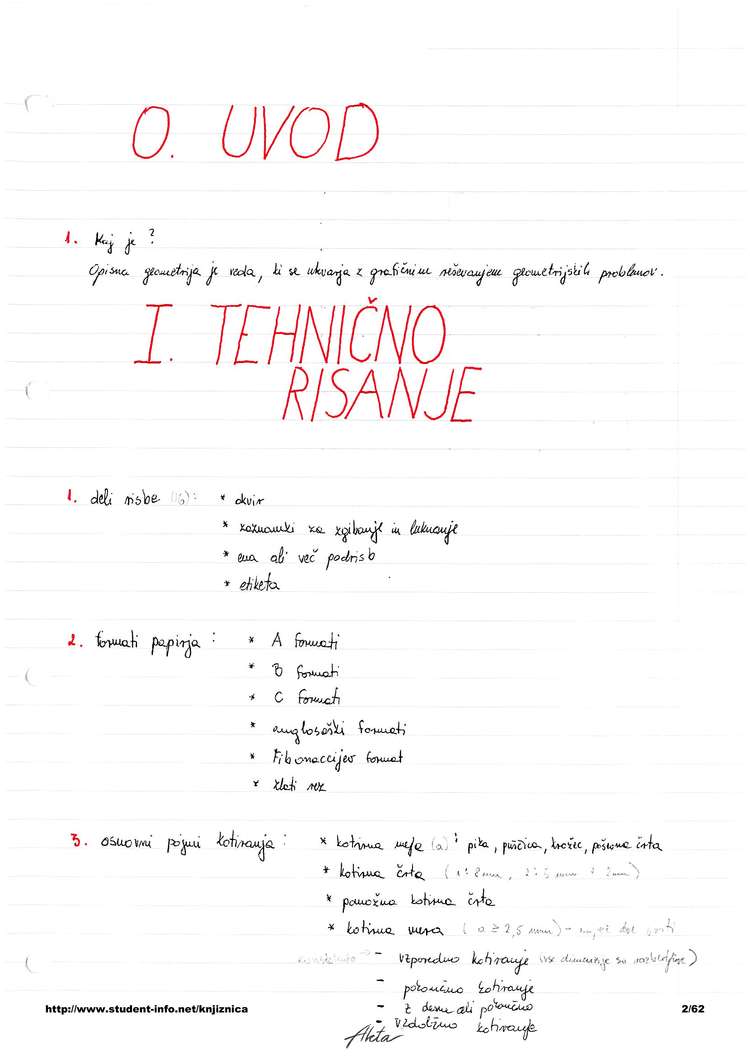 0. UVOD
1. Kaj je?
Opisna geometrija je veda, ki se ukvarja z grafičnim reševanjem geometrijskih problemov.
I. TEHNIČNO
RISANJE
1. deli risbe (16): * okvir
* zaznamki za zgibanje in luknanje
* ena ali več podrisb
* etiketa
2. formati papirja: * A formati
* B formati
* C formati
* angloseški formati
* Fibonaccijev format
* zlati rez
3. osnovni pojmi kotiranja: * kotirna meja (a): pika, puščica, krožec, poševna črta
* kotirna črta
* pomožna kotirna črta
* kotirna mera (a ≥ 2,5 mm)
- vzporedno kotiranje (vse dimenzije so
- pokončno kotiranje
http://www.student-info.net/knjiznica - z desne ali pokončno 2/62
- vzdolžno kotiranje